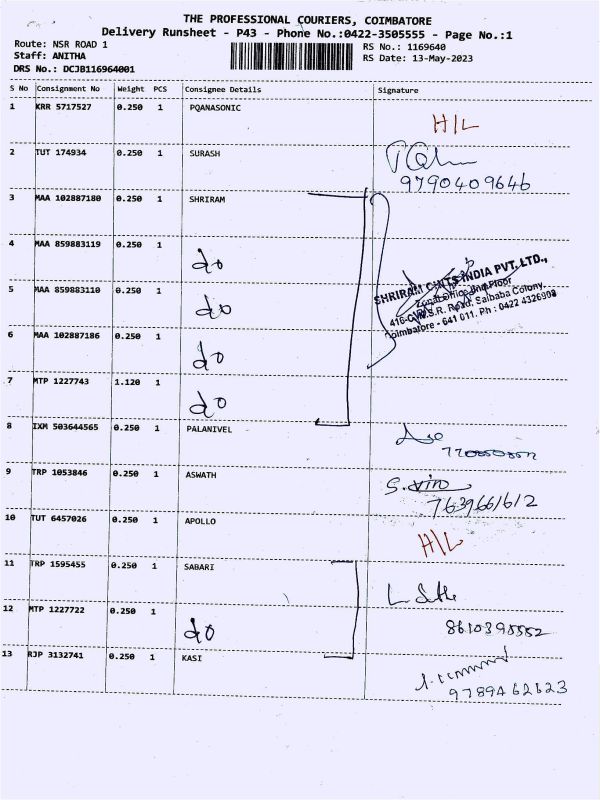 THE PROFESSIONAL COURIERS, COIMBATORE
Delivery Runsheet - P43 - Phone No.:0422-3505555 - Page No.:1
Route: NSR ROAD 1
RS No.: 1169640
Staff: ANITHA
RS Date: 13-May-2023
DRS No.: DCJB116964001
S No Consignment No Weight PCS Consignee Details Signature
1 KRR 5717527 0.250 1 PQANASONIC
H/L
2 TUT 174934 0.250 1 SURASH
9790409646
3 MAA 102887180 0.250 1 SHRIRAM
4 MAA 859883119 0.250 1 do
5 MAA 859883110 0.250 1 do
6 MAA 102887186 0.250 1 do
7 MTP 1227743 1.120 1 do
SHRIRAM CHITS INDIA PVT. LTD.,
Zonal Office, Floor
416-C, N.S.R. Road, Saibaba Colony,
Coimbatore - 641 011. Ph : 0422 4326998
8 IXM 503644565 0.250 1 PALANIVEL
9 TRP 1053846 0.250 1 ASWATH
7639661612
10 TUT 6457026 0.250 1 APOLLO
H/L
11 TRP 1595455 0.250 1 SABARI
12 MTP 1227722 0.250 1 do
13 RJP 3132741 0.250 1 KASI
9789462623